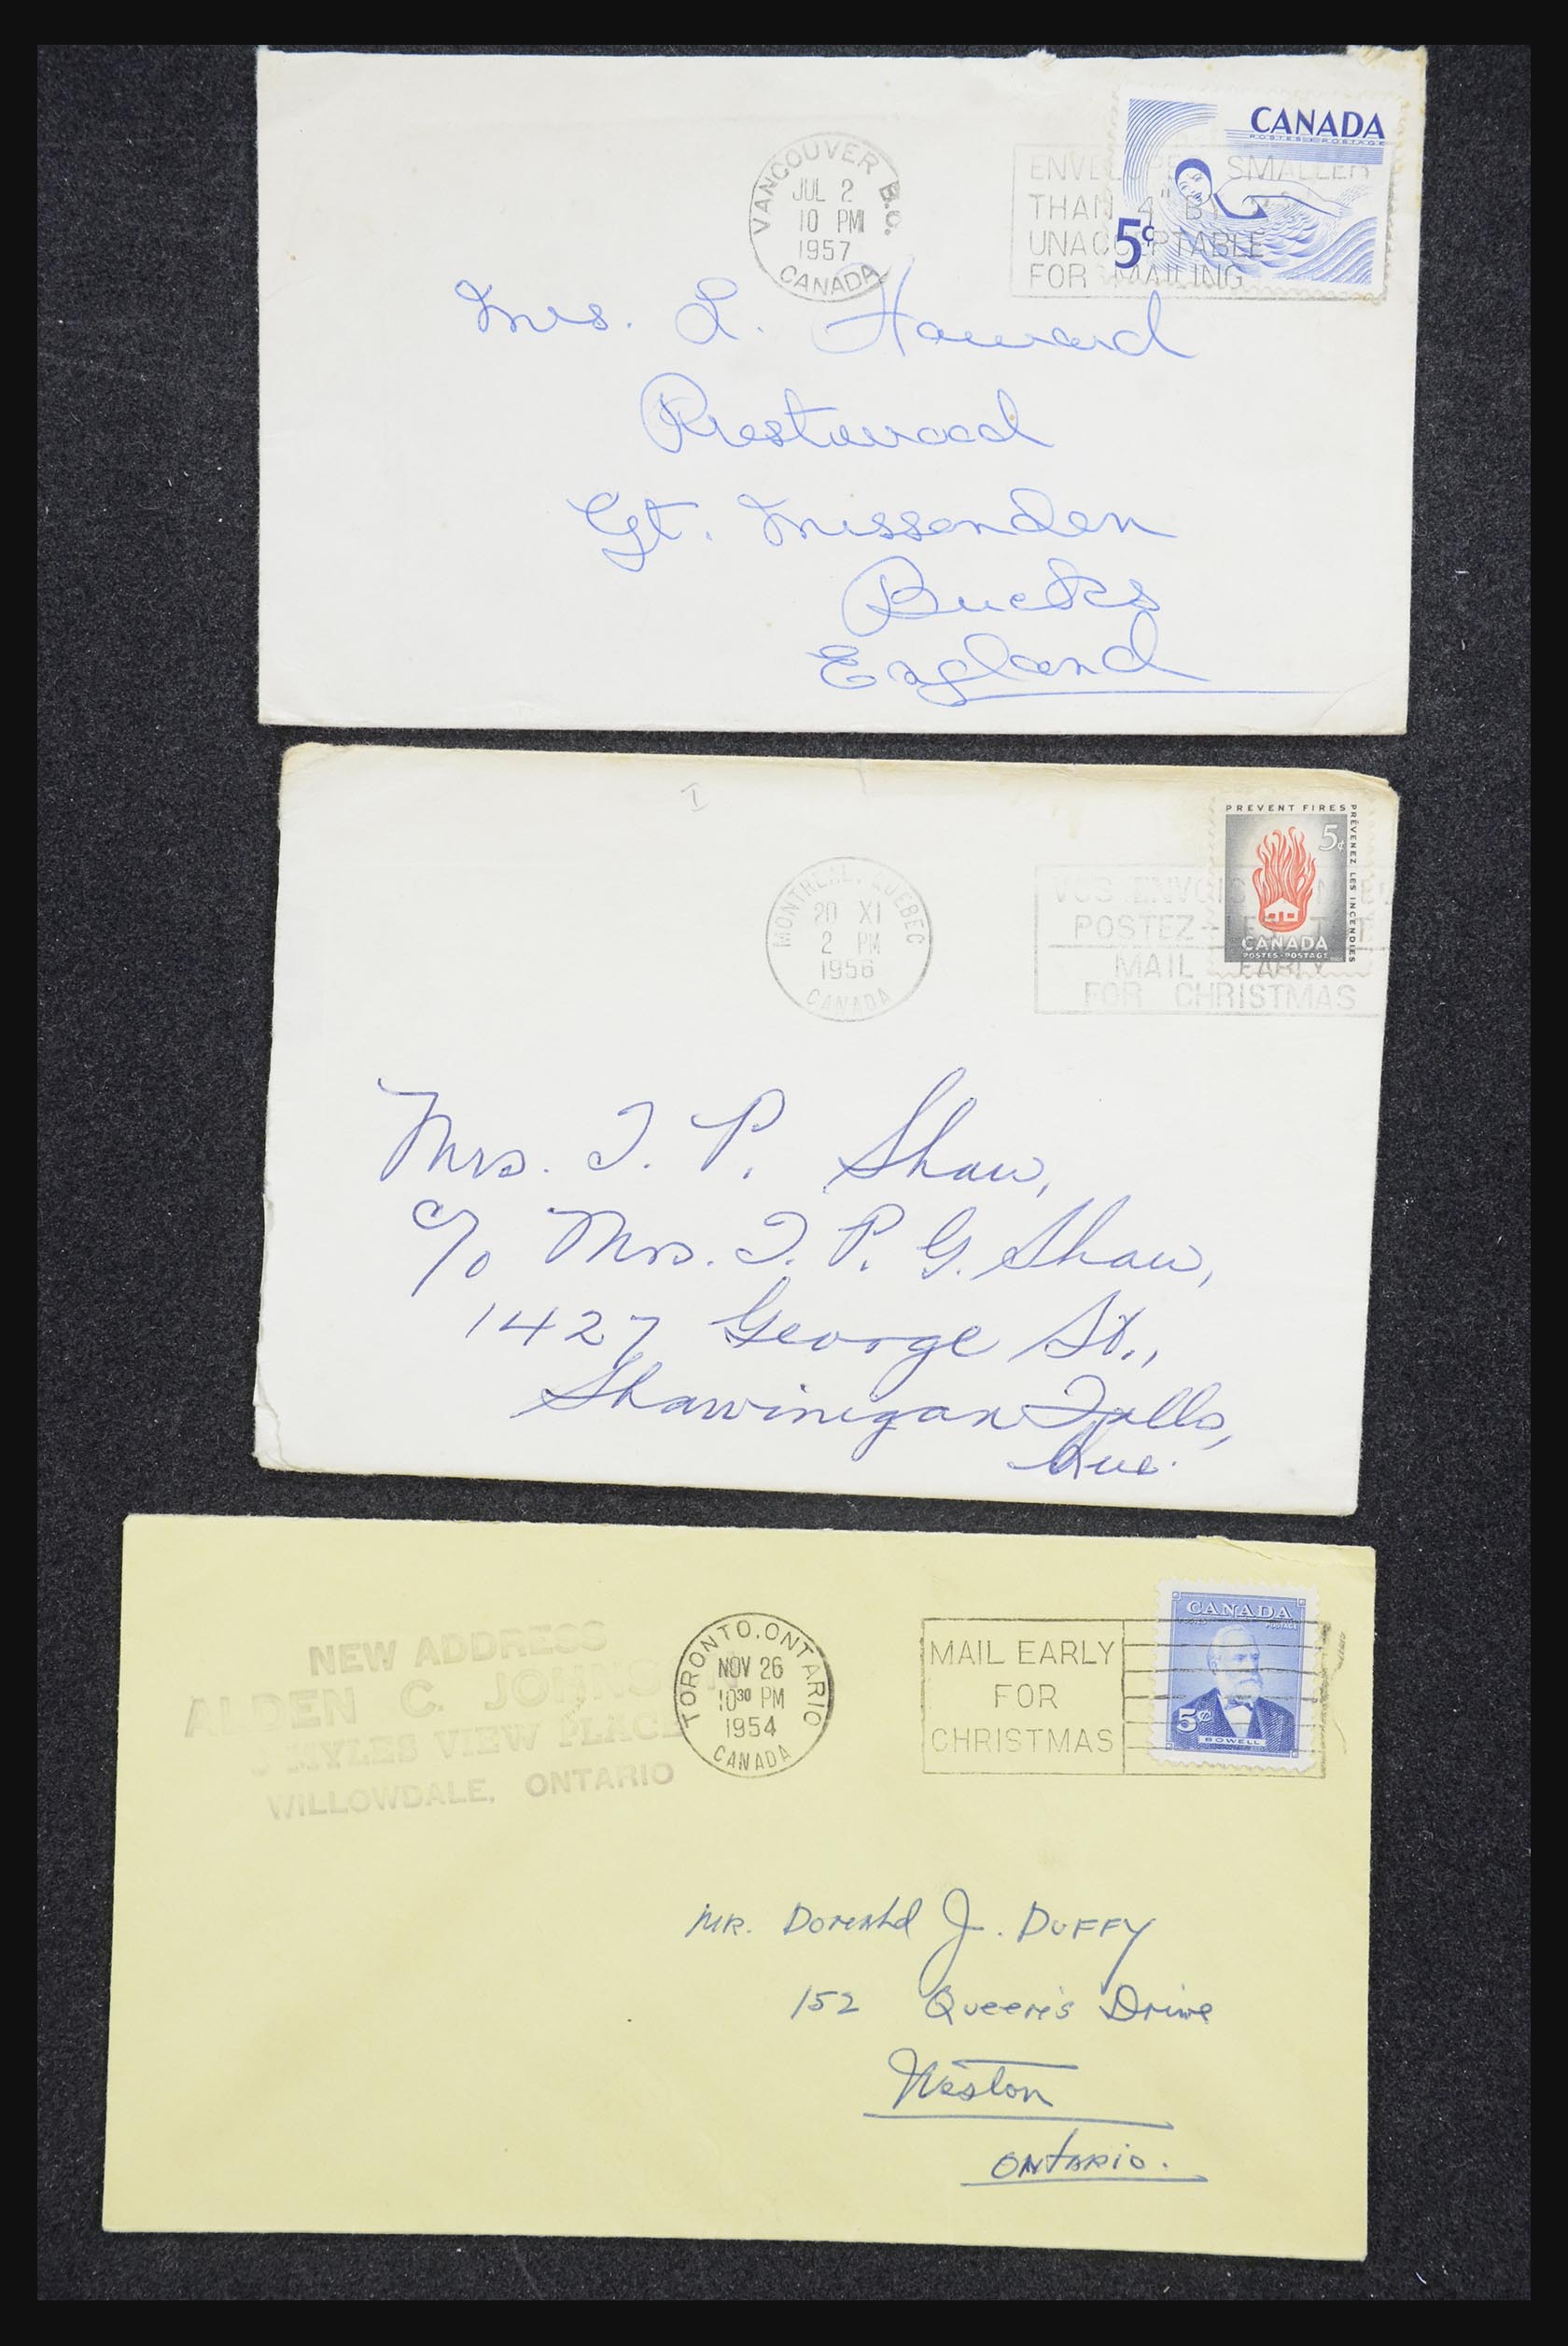 CANADA
POSTES POSTAGE
5¢
VANCOUVER B.C.
JUL 2
10 PM
1957
CANADA
SMALLER
THAN 4" BY
UNACCEPTABLE
FOR MAILING
Mrs. L. Howard
Prestwood
Gt. Missenden
Bucks
England
PREVENT FIRES
PRÉVENEZ LES INCENDIES
5¢
CANADA
POSTES-POSTAGE
MONTREAL, QUEBEC
20 XI
2 PM
1956
CANADA
VOS ENVOIS
POSTEZ-LES
MAIL EARLY
FOR CHRISTMAS
Mrs. T. P. Shaw,
c/o Mrs. T. P. G. Shaw,
1427 George St.,
Shawinigan Falls,
Que.
NEW ADDRESS
ALDEN C. JOHNSON
MYLES VIEW PLACE
WILLOWDALE, ONTARIO
TORONTO, ONTARIO
NOV 26
10 30 PM
1954
CANADA
MAIL EARLY
FOR
CHRISTMAS
CANADA
POSTAGE
5¢
BOWELL
MR. Donald J. DUFFY
152 Queen's Drive
Weston
ONTARIO.